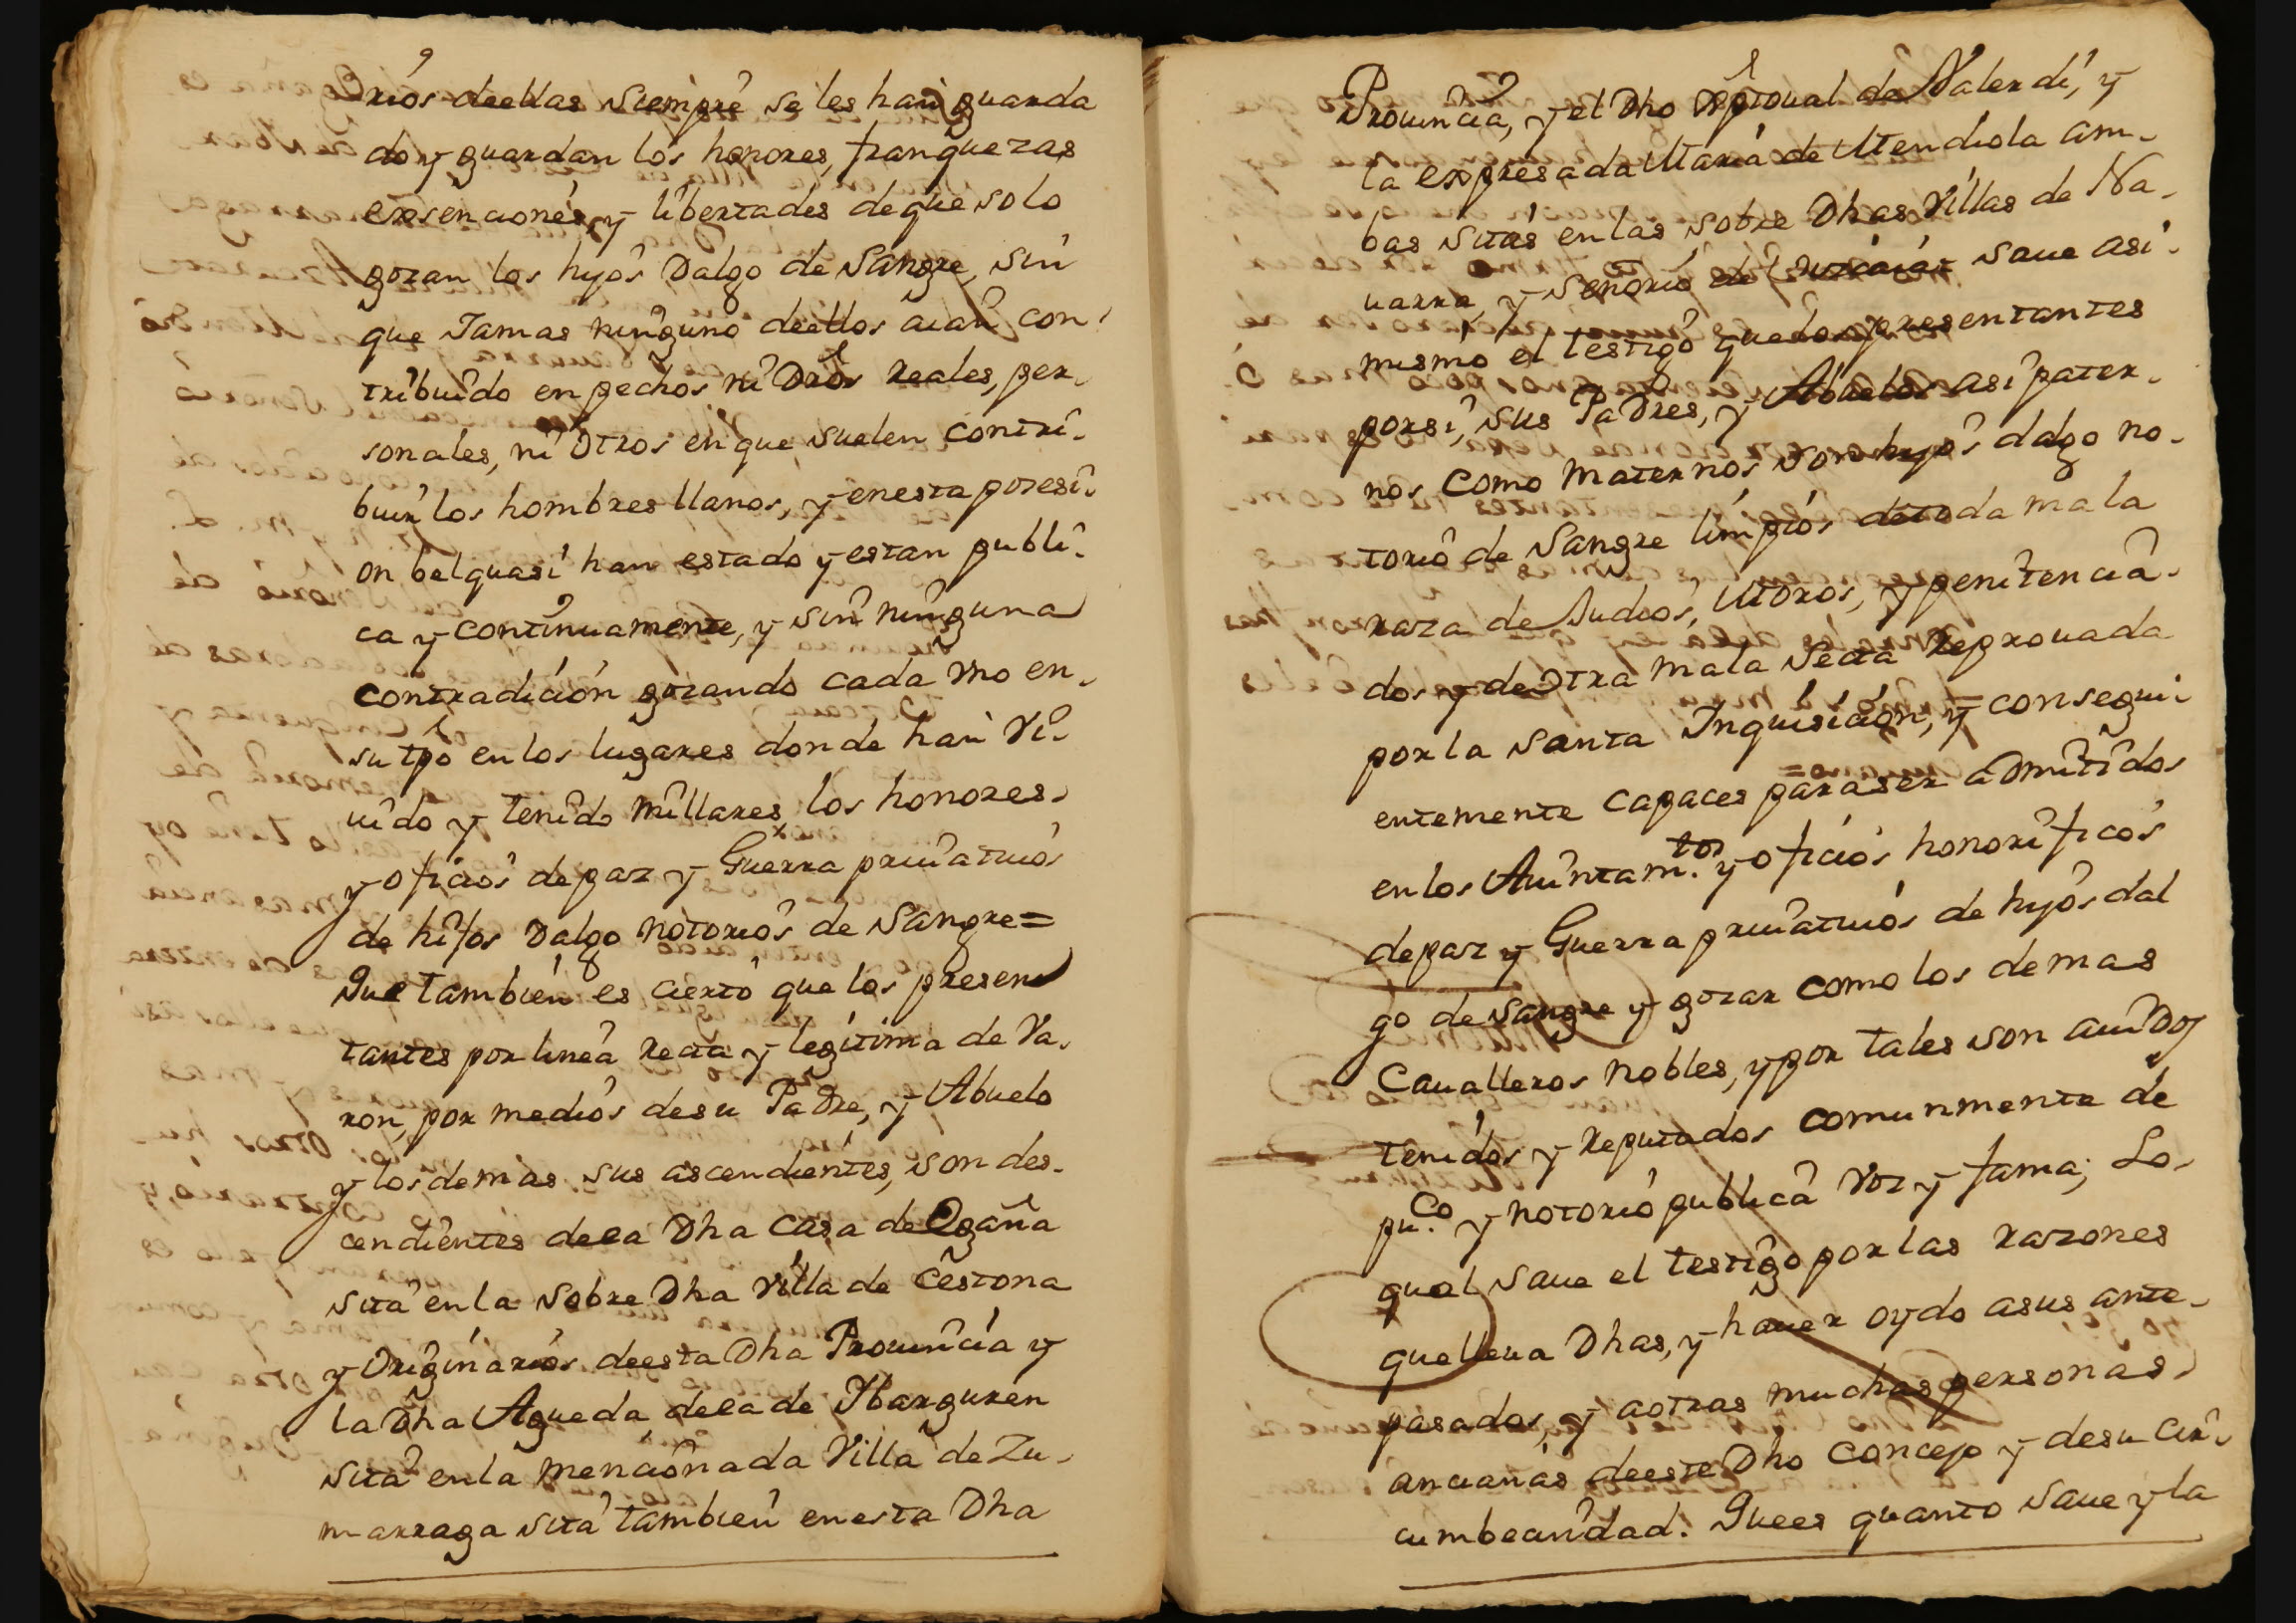 rios deellas siempre se les han guarda
do y guardan los honores, franquezas
exsenciones, y libertades de que solo
gozan los hijos Dalgo de Sangre, sin
que Jamas ninguno deellos aian con-
tribuido en pechos ni Dros Reales, per-
sonales, ni Otros en que suelen contri-
buir los hombres llanos, y enesta posesi-
on belquasi han estado y estan publi-
ca y continuamente, y sin ninguna
contradición gozando cada vno en-
su tpo en los lugares donde han Vi-
uido y tenido millares los honores
y oficios de paz y Guerra priuatiuos
de hijos Dalgo notorios de Sangre=
Que tambien es cierto que los presen
tantes por linea Recta y legitima de Va-
ron, por medios desu Padre, y Abuelo
y los demas sus ascendientes, son des-
cendientes dela Dha Casa de Ogaña
sita en la sobre Dha Villa de Cestona
y Originarios deesta Dha Prouincia y
la Dha Agueda, dela de Ybarguren
sita en la mencionada Villa de Zu-
marraga sita tambien en esta Dha
Prouincia, y el Dho de Valerdi, y
la expresada Maria de Mendiola am-
bas sitas en las sobre Dhas Villas de Na-
uarra, y Señorio de Vizcaia= saue asi-
mismo el testigo que los presentantes
porsi, sus Padres, y Abuelos asi pater-
nos como maternos son hijos dalgo no-
torio de Sangre limpios detoda mala
raza de Judios, Moros, y penitencia-
dos y de Otra mala Secta Reprouada
por la Santa Inquisición, y consegui-
entemente capaces para ser admitidos
en los Aiuntam.tos y oficios honorificos
de paz y Guerra priuatiuos de hijos dal
go de Sangre y gozar como los demas
Caualleros nobles, y por tales son auidos
tenidos y Reputados comunmente de
pu.co y notorio publica Voz y fama; Lo-
qual saue el testigo por las razones
que lleua Dhas, y hauer oydo asus ante-
pasados, y aotras muchas personas
ancianas deeste Dho Concejo y desu cir-
cumbecindad. Quees quanto saue y la